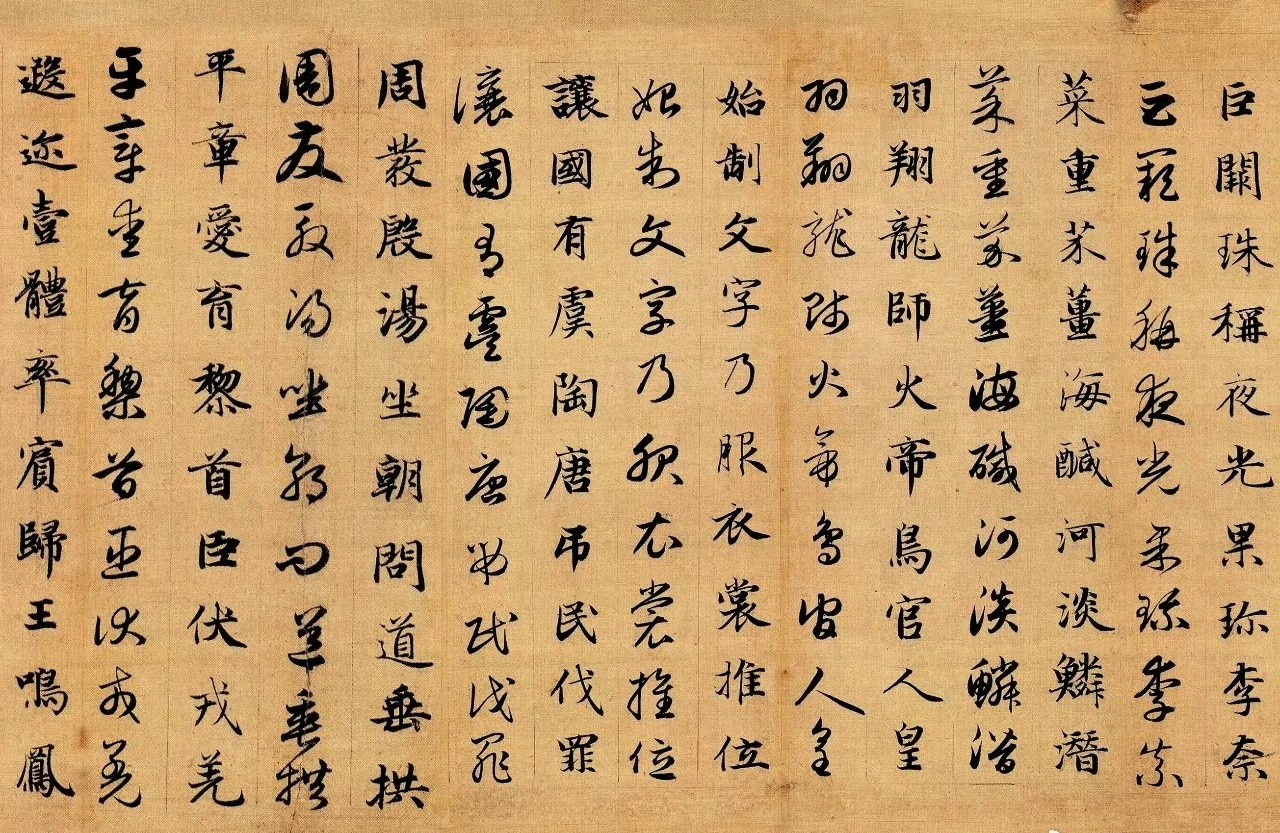 巨闕珠稱夜光果珎李柰
巨闕珠稱夜光果珎李柰
菜重芥薑海醎河淡鱗潛
菜重芥薑海醎河淡鱗潛
羽翔龍師火帝鳥官人皇
羽翔龍師火帝鳥官人皇
始制文字乃服衣裳推位
始制文字乃服衣裳推位
讓國有虞陶唐吊民伐罪
讓國有虞陶唐吊民伐罪
周發殷湯坐朝問道垂拱
周發殷湯坐朝問道垂拱
平章愛育黎首臣伏戎羌
平章愛育黎首臣伏戎羌
遐迩壹體率賓歸王鳴鳳